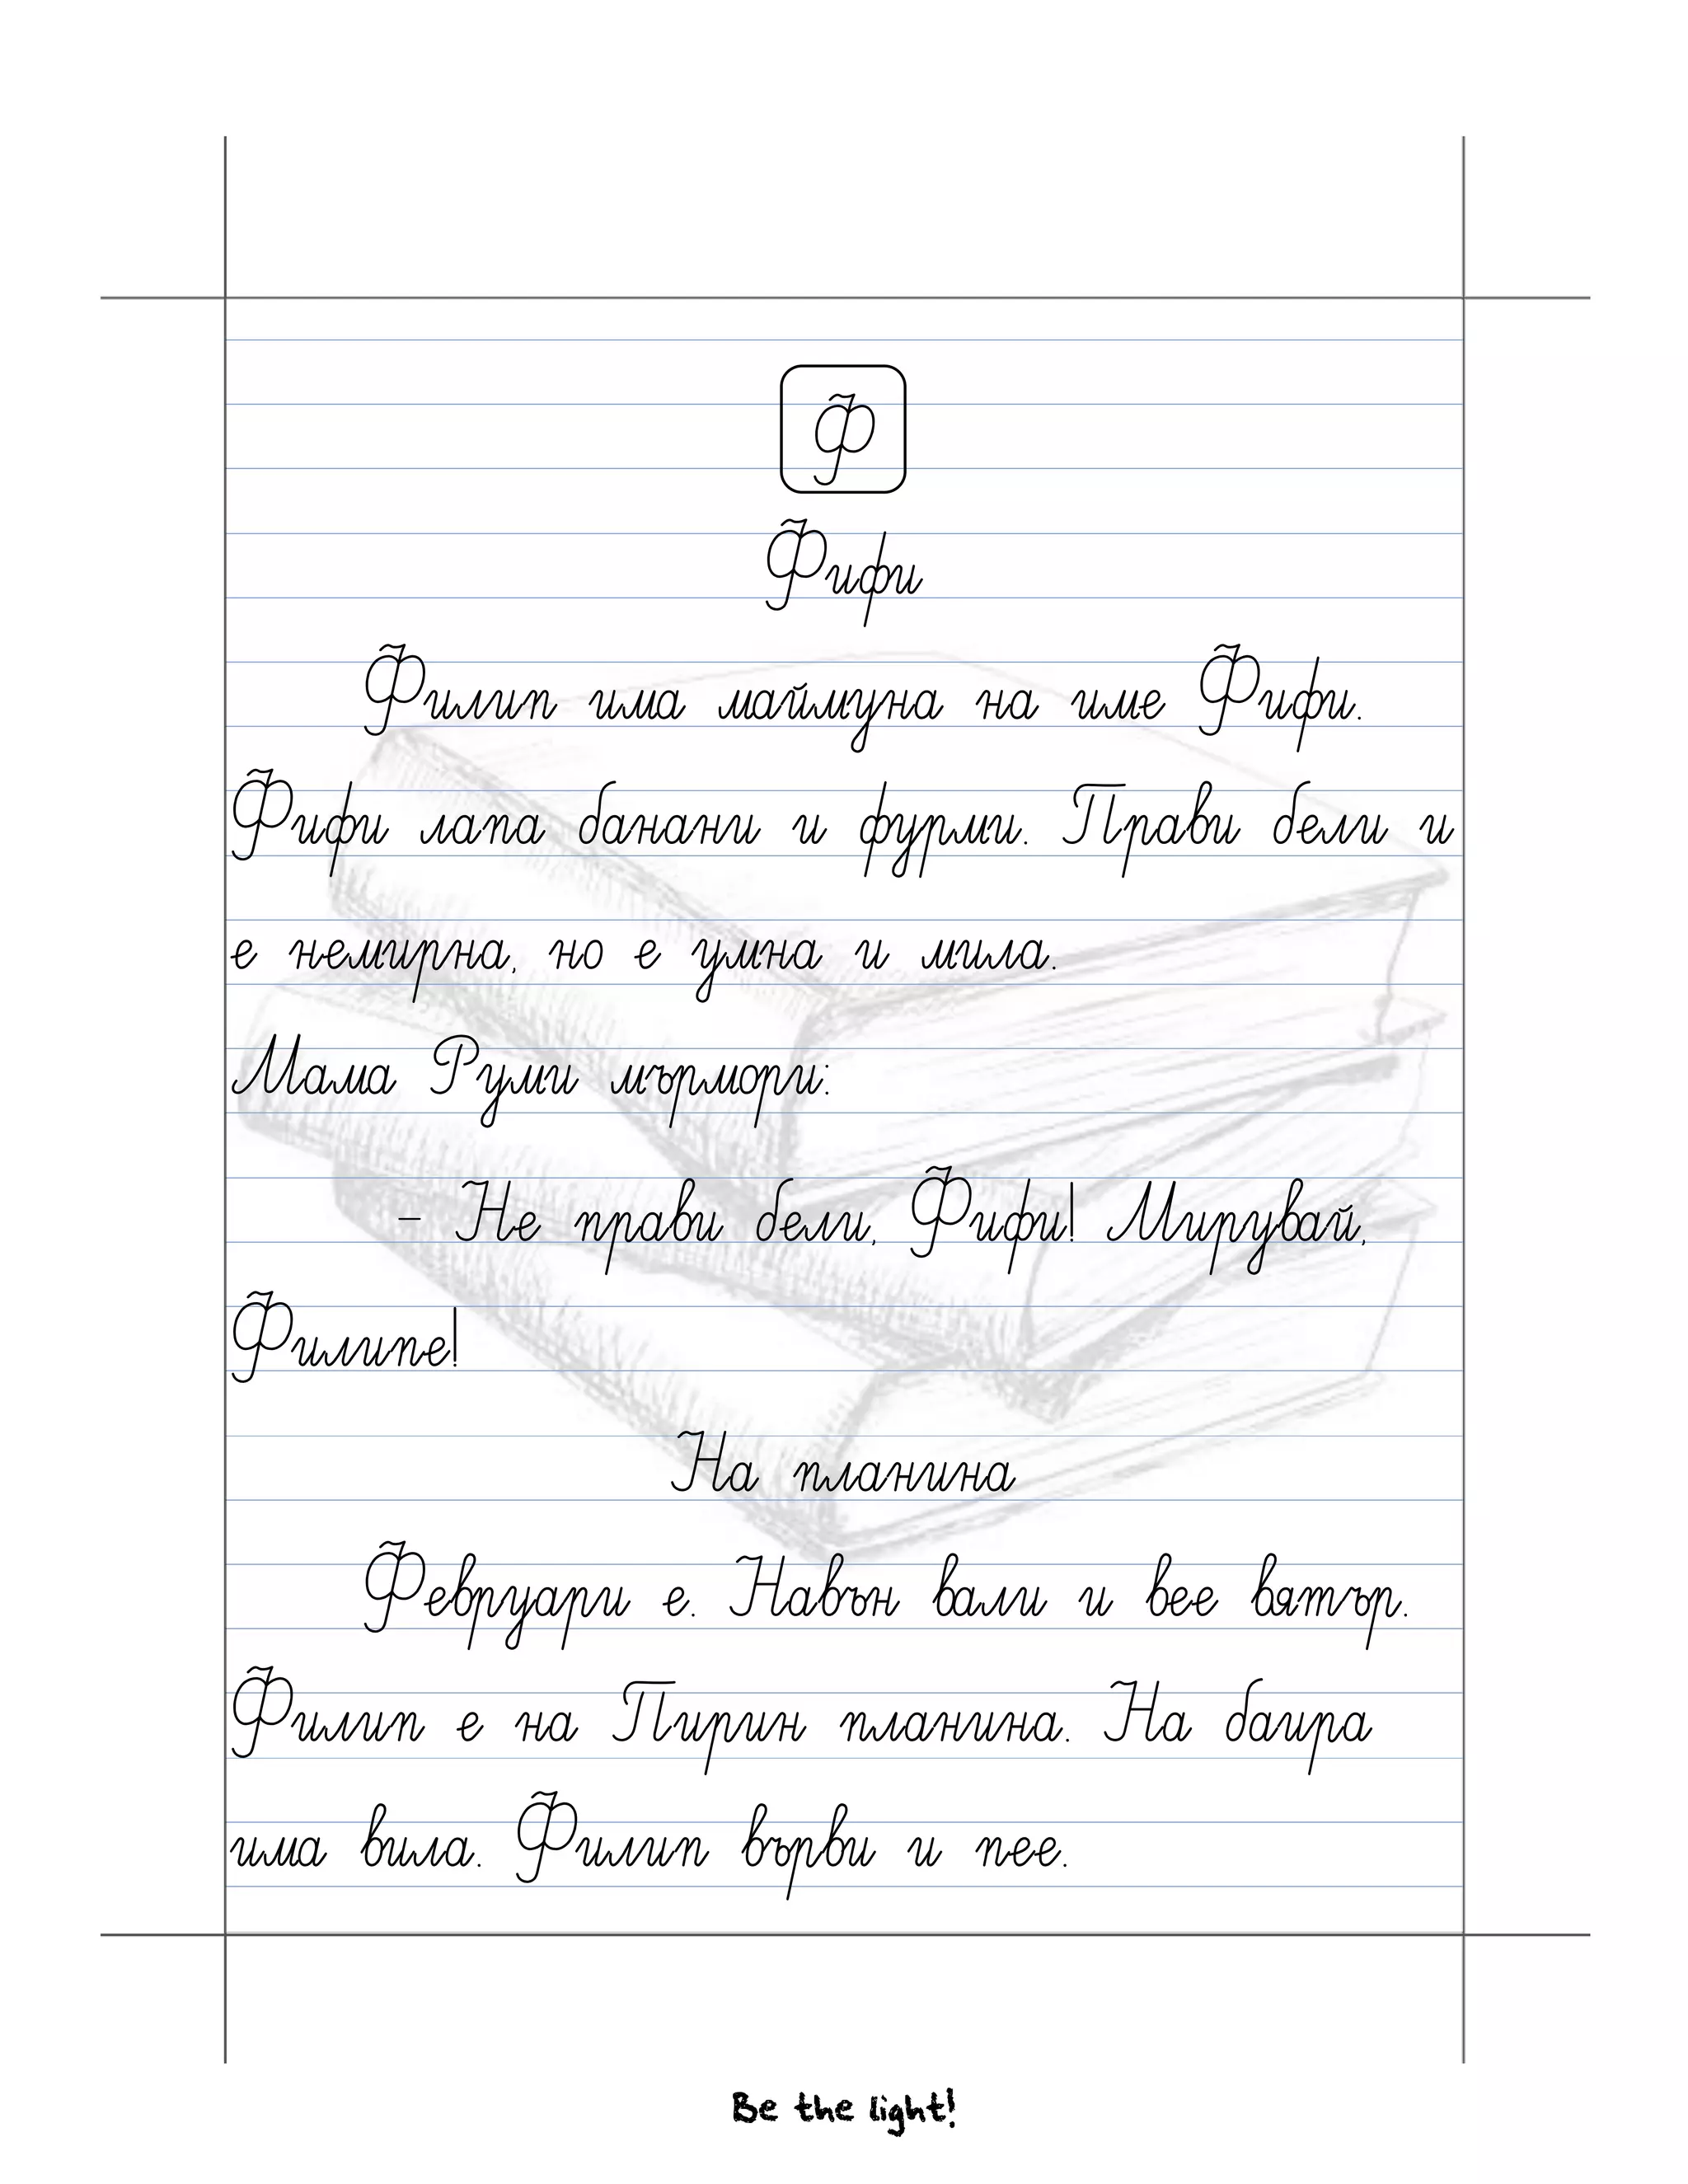 Ф
Фифи
Филип има маймуна на име Фифи.
Фифи лапа банани и фурми. Прави бели и
е немирна, но е умна и мила.
Мама Руми мърмори:
- Не прави бели, Фифи! Мирувай,
Филипе!
На планина
Февруари е. Навън вали и вее вятър.
Филип е на Пирин планина. На баира
има вила. Филип върви и пее.
Be the light!